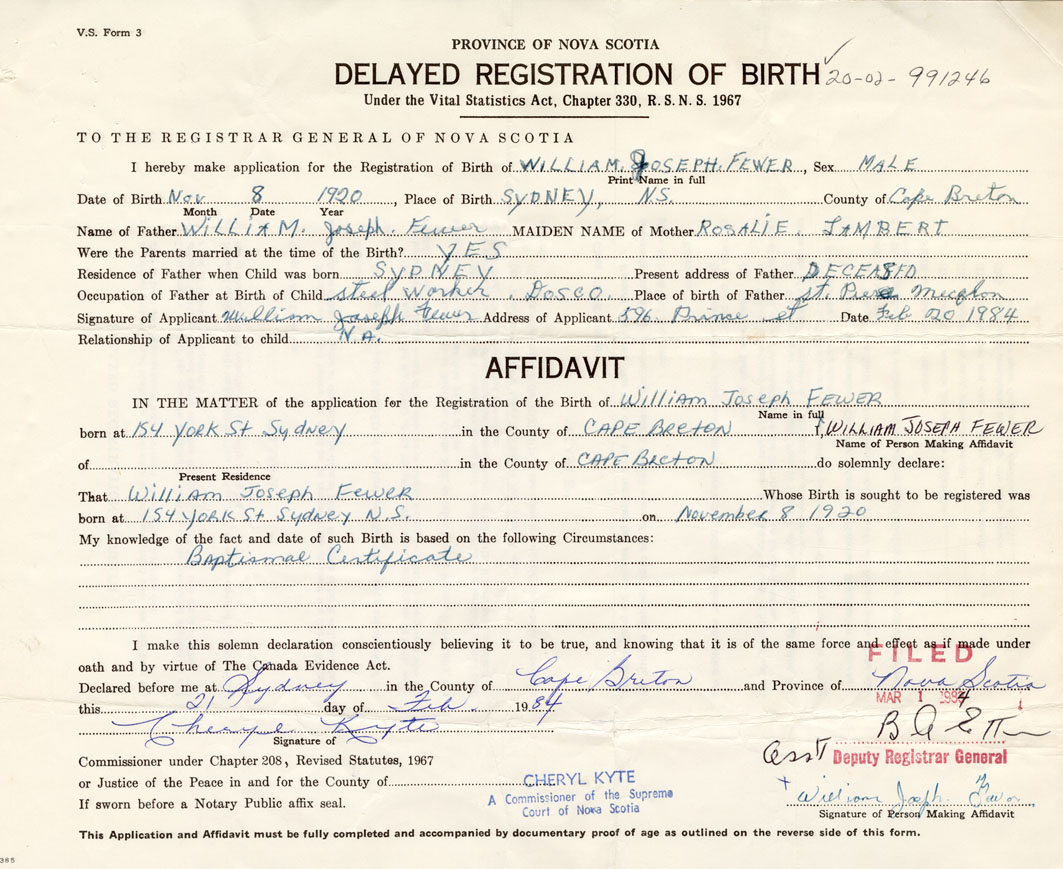 V.S. Form 3
PROVINCE OF NOVA SCOTIA
DELAYED REGISTRATION OF BIRTH 20-02-991246
Under the Vital Statistics Act, Chapter 330, R.S.N.S. 1967
TO THE REGISTRAR GENERAL OF NOVA SCOTIA
I hereby make application for the Registration of Birth of WILLIAM. JOSEPH. FEWER, Sex MALE
Print Name in full
Date of Birth Nov 8 1920, Place of Birth SYDNEY, NS. County of Cape Breton
Month Date Year
Name of Father WILLIAM. Joseph. Fewer MAIDEN NAME of Mother ROSALIE. LAMBERT
Were the Parents married at the time of the Birth? YES
Residence of Father when Child was born SYDNEY Present address of Father DECEASED
Occupation of Father at Birth of Child steel Worker. DOSCO. Place of birth of Father st.
Signature of Applicant William Joseph Fewer Address of Applicant 596 Prince st Date Feb 20 1984
Relationship of Applicant to child N.A.
AFFIDAVIT
IN THE MATTER of the application for the Registration of the Birth of William Joseph FEWER
Name in full
born at 154 YORK St Sydney in the County of CAPE BRETON I, WILLIAM JOSEPH FEWER
Name of Person Making Affidavit
of in the County of CAPE BRETON do solemnly declare:
Present Residence
That William Joseph FEWER Whose Birth is sought to be registered was
born at 154 YORK St Sydney N.S. on November 8 1920
My knowledge of the fact and date of such Birth is based on the following Circumstances:
Baptismal Certificate
I make this solemn declaration conscientiously believing it to be true, and knowing that it is of the same force and effect as if made under
oath and by virtue of The Canada Evidence Act.
FILED
Declared before me at Sydney in the County of Cape Breton and Province of Nova Scotia
MAR 1 1984
this 21 day of Feb. 1984
Cheryl Kyte
Signature of
Asst Deputy Registrar General
Commissioner under Chapter 208, Revised Statutes, 1967
or Justice of the Peace in and for the County of
CHERYL KYTE
A Commissioner of the Supreme
Court of Nova Scotia
If sworn before a Notary Public affix seal.
William Joseph Fewer
Signature of Person Making Affidavit
This Application and Affidavit must be fully completed and accompanied by documentary proof of age as outlined on the reverse side of this form.
385